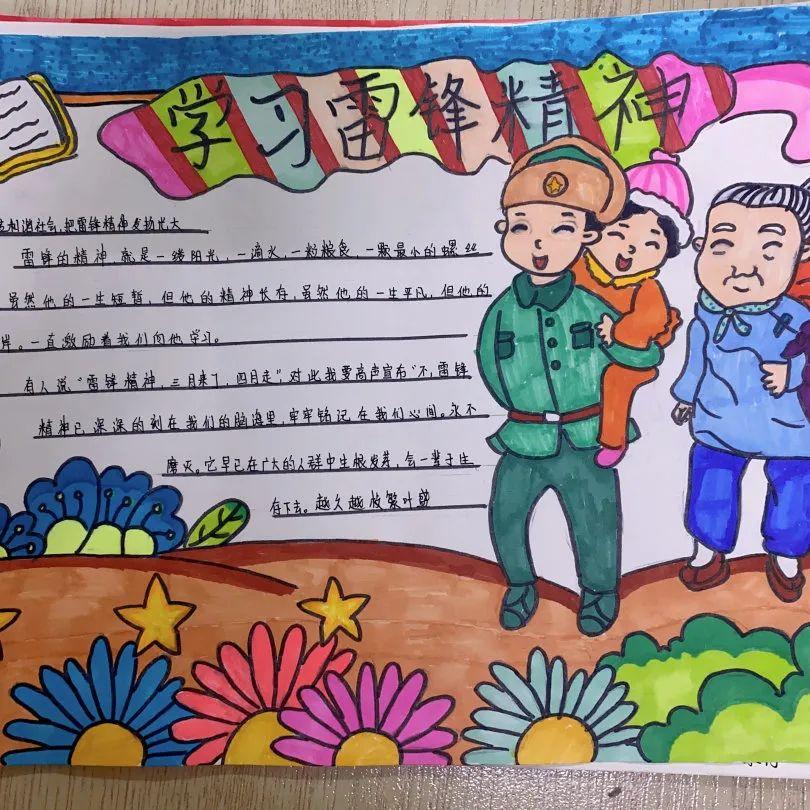 学习雷锋精神
和谐社会,把雷锋精神发扬光大
雷锋的精神就是一缕阳光,一滴水,一粒粮食,一颗最小的螺丝
虽然他的一生短暂,但他的精神长存,虽然他的一生平凡,但他的
一直激励着我们向他学习。
有人说“雷锋精神,三月来了,四月走”对此我要高声宣布“不,雷锋
精神已深深的刻在我们的脑海里,牢牢铭记在我们心间。永不
磨灭。它早已在广大的人群中生根发芽,会一辈子生
存下去。越久越枝繁叶